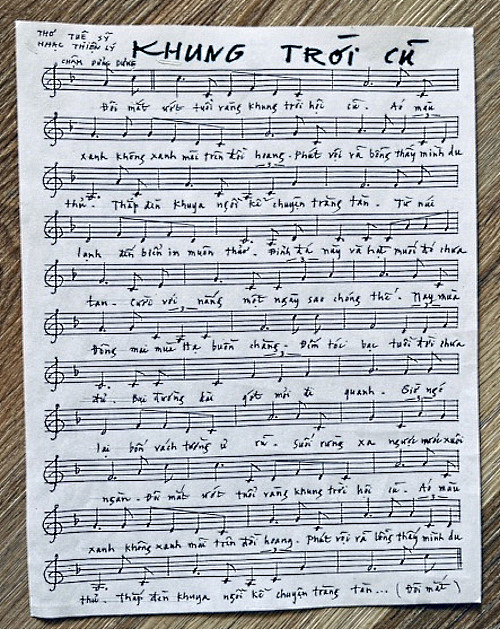 THƠ TUỆ SỸ
NHẠC THIỆN LÝ
KHUNG TRỜI CŨ
CHẬM DỪNG DỪNG
Đôi mắt ướt tuổi vàng khung trời hội cũ. Áo màu
xanh không xanh mãi trên đồi hoang. Phút vội và bỗng thấy mình du
thủ. Thắp đèn khuya ngồi kể chuyện trăng tàn. Từ núi
lạnh đến biển im muôn thuở. Đỉnh đá này và hạt muối đó chưa
tan. Cười với nắng một ngày sao chóng thế. Nay mùa
Đông mai mùa Hạ buồn chăng. Đếm tóc bạc tuổi đời chưa
đủ. Bụi đường dài gót mỏi đi quanh. Giờ ngó
lại bốn vách tường ủ rũ. Suối rừng xa ngược nước xuôi
ngàn. Đôi mắt ướt tuổi vàng khung trời hội cũ. Áo màu
xanh không xanh mãi trên đồi hoang. Phút vội và bỗng thấy mình du
thủ. Thắp đèn khuya ngồi kể chuyện trăng tàn... (Đôi mắt)